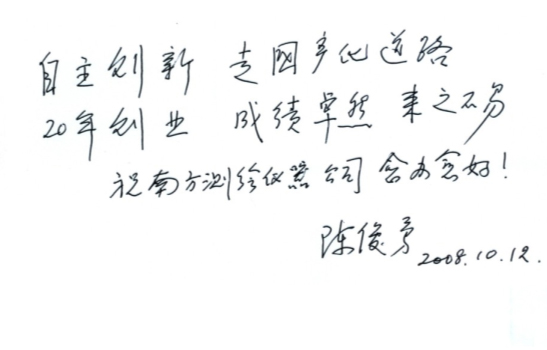 自主创新 走国产化道路
20年创业 成绩卓然 来之不易
祝南方测绘仪器公司 会办会好!
陈俊勇 2008.10.12.